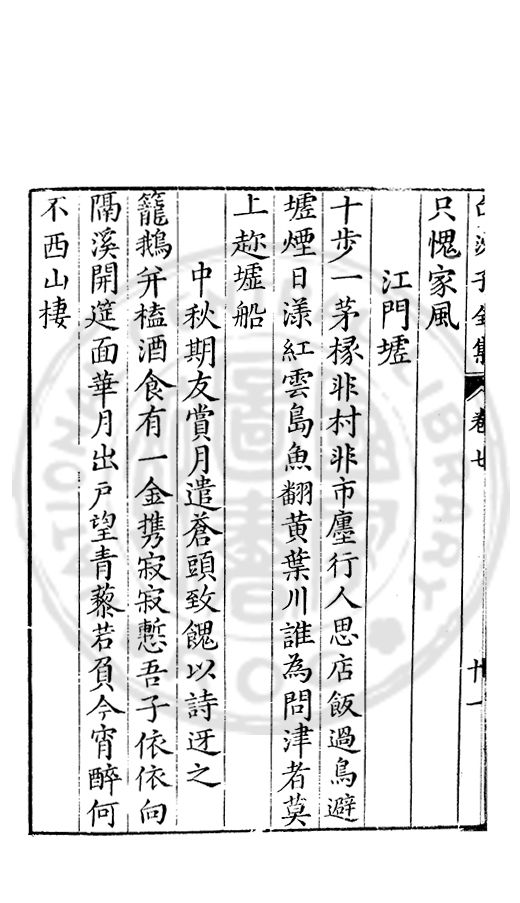 白沙子全集 卷七 廿一
只愧家風
江門墟
十步一茅椽非村非市廛行人思店飯過鳥避
墟煙日漾紅雲島魚翻黃葉川誰為問津者莫
上趂墟船
中秋期友賞月遣蒼頭致餽以詩迓之
籠鵝并榼酒食有一金携寂寂慙吾子依依向
隔溪開筵面華月出戶望青藜若負今宵醉何
不西山棲
NATIONAL LIBRARY